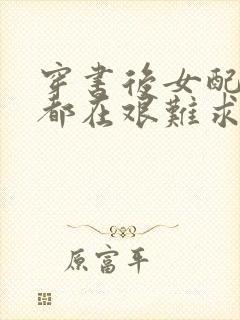 穿書後女配
都在艰難求
原富平